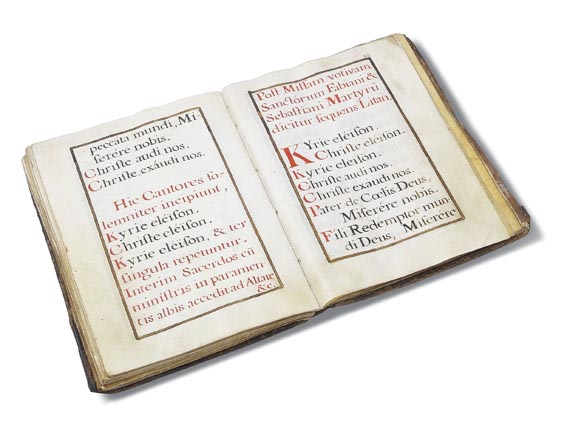 peccata mundi, Mi-
serére nobis.
Christe audi nos.
Christe exáudi nos.
Hic Cantores so-
lemniter incipiunt,
Kyrie eléison.
Christe eléison.
Kyrie eléison, & ter
singula repetuntur.
Interim Sacerdos cū
ministris in paramen
tis albis acceditad Altare
&c.
Post Missam votivam
Sanctórum Fabiani &
Sebastiani Martyrū
dicitur sequens Letan.
Kyrie eléison.
Christe eléison.
Kyrie eléison.
Christe audi nos.
Christe exaudi nos.
Pater de Cœlis Deus,
Miserére nobis.
Fili Redemptor mun
di Deus, Miserére